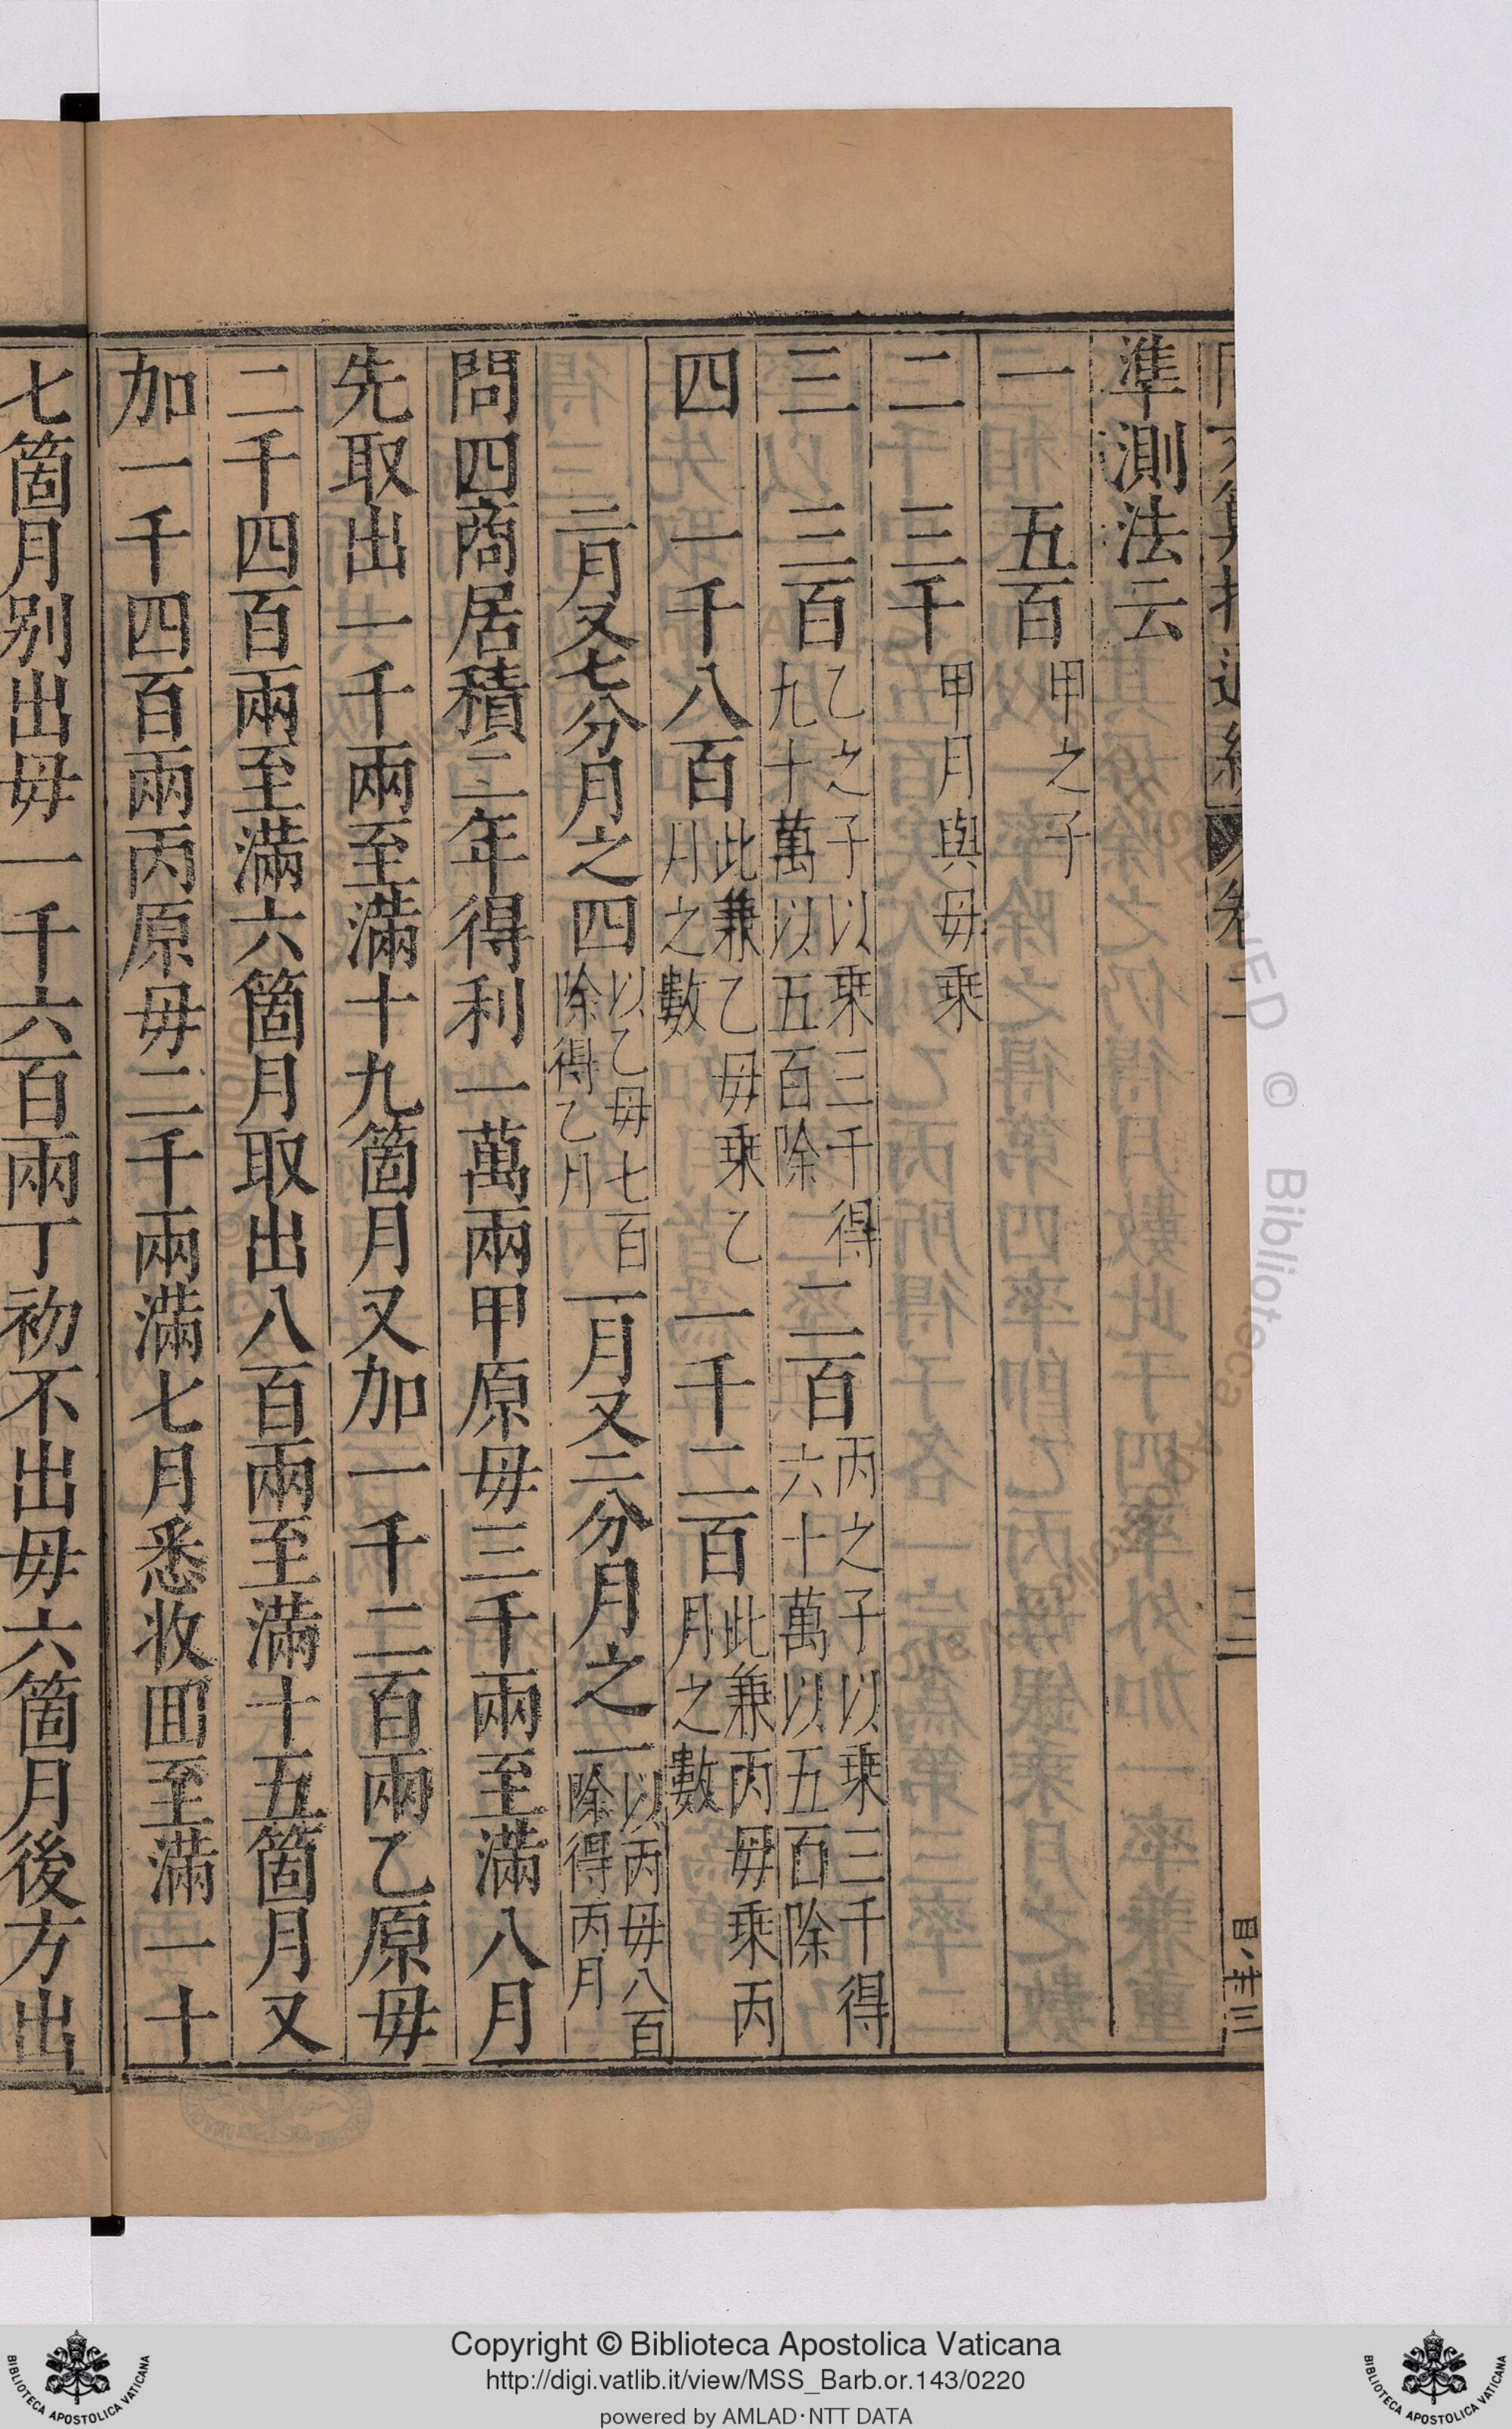 準測法云
一 五百 甲之子
二 三千 甲月與毋乘
三 三百 乙之子以乘三千得九十萬以五百除 二百 丙之子以乘三千得六十萬以五百除
四 一千八百 此兼乙毋乘乙月之數 一千二百 此兼丙毋乘丙月之數
二月又七分月之四 以乙毋七百除得乙月 一月又二分月之一 以丙毋八百除得丙月
問四商居積二年得利一萬兩甲原毋三千兩至滿八月
先取出一千兩至滿十九箇月又加一千二百兩乙原毋
二千四百兩至滿六箇月取出八百兩至滿十五箇月又
加一千四百兩丙原毋二千兩滿七月悉收囬至滿一十
七箇月别出毋一千六百兩丁初不出毋六箇月後方出
Copyright © Biblioteca Apostolica Vaticana
http://digi.vatlib.it/view/MSS_Barb.or.143/0220
powered by AMLAD·NTT DATA
BIBLIOTECA APOSTOLICA VATICANA
BIBLIOTECA APOSTOLICA VATICANA